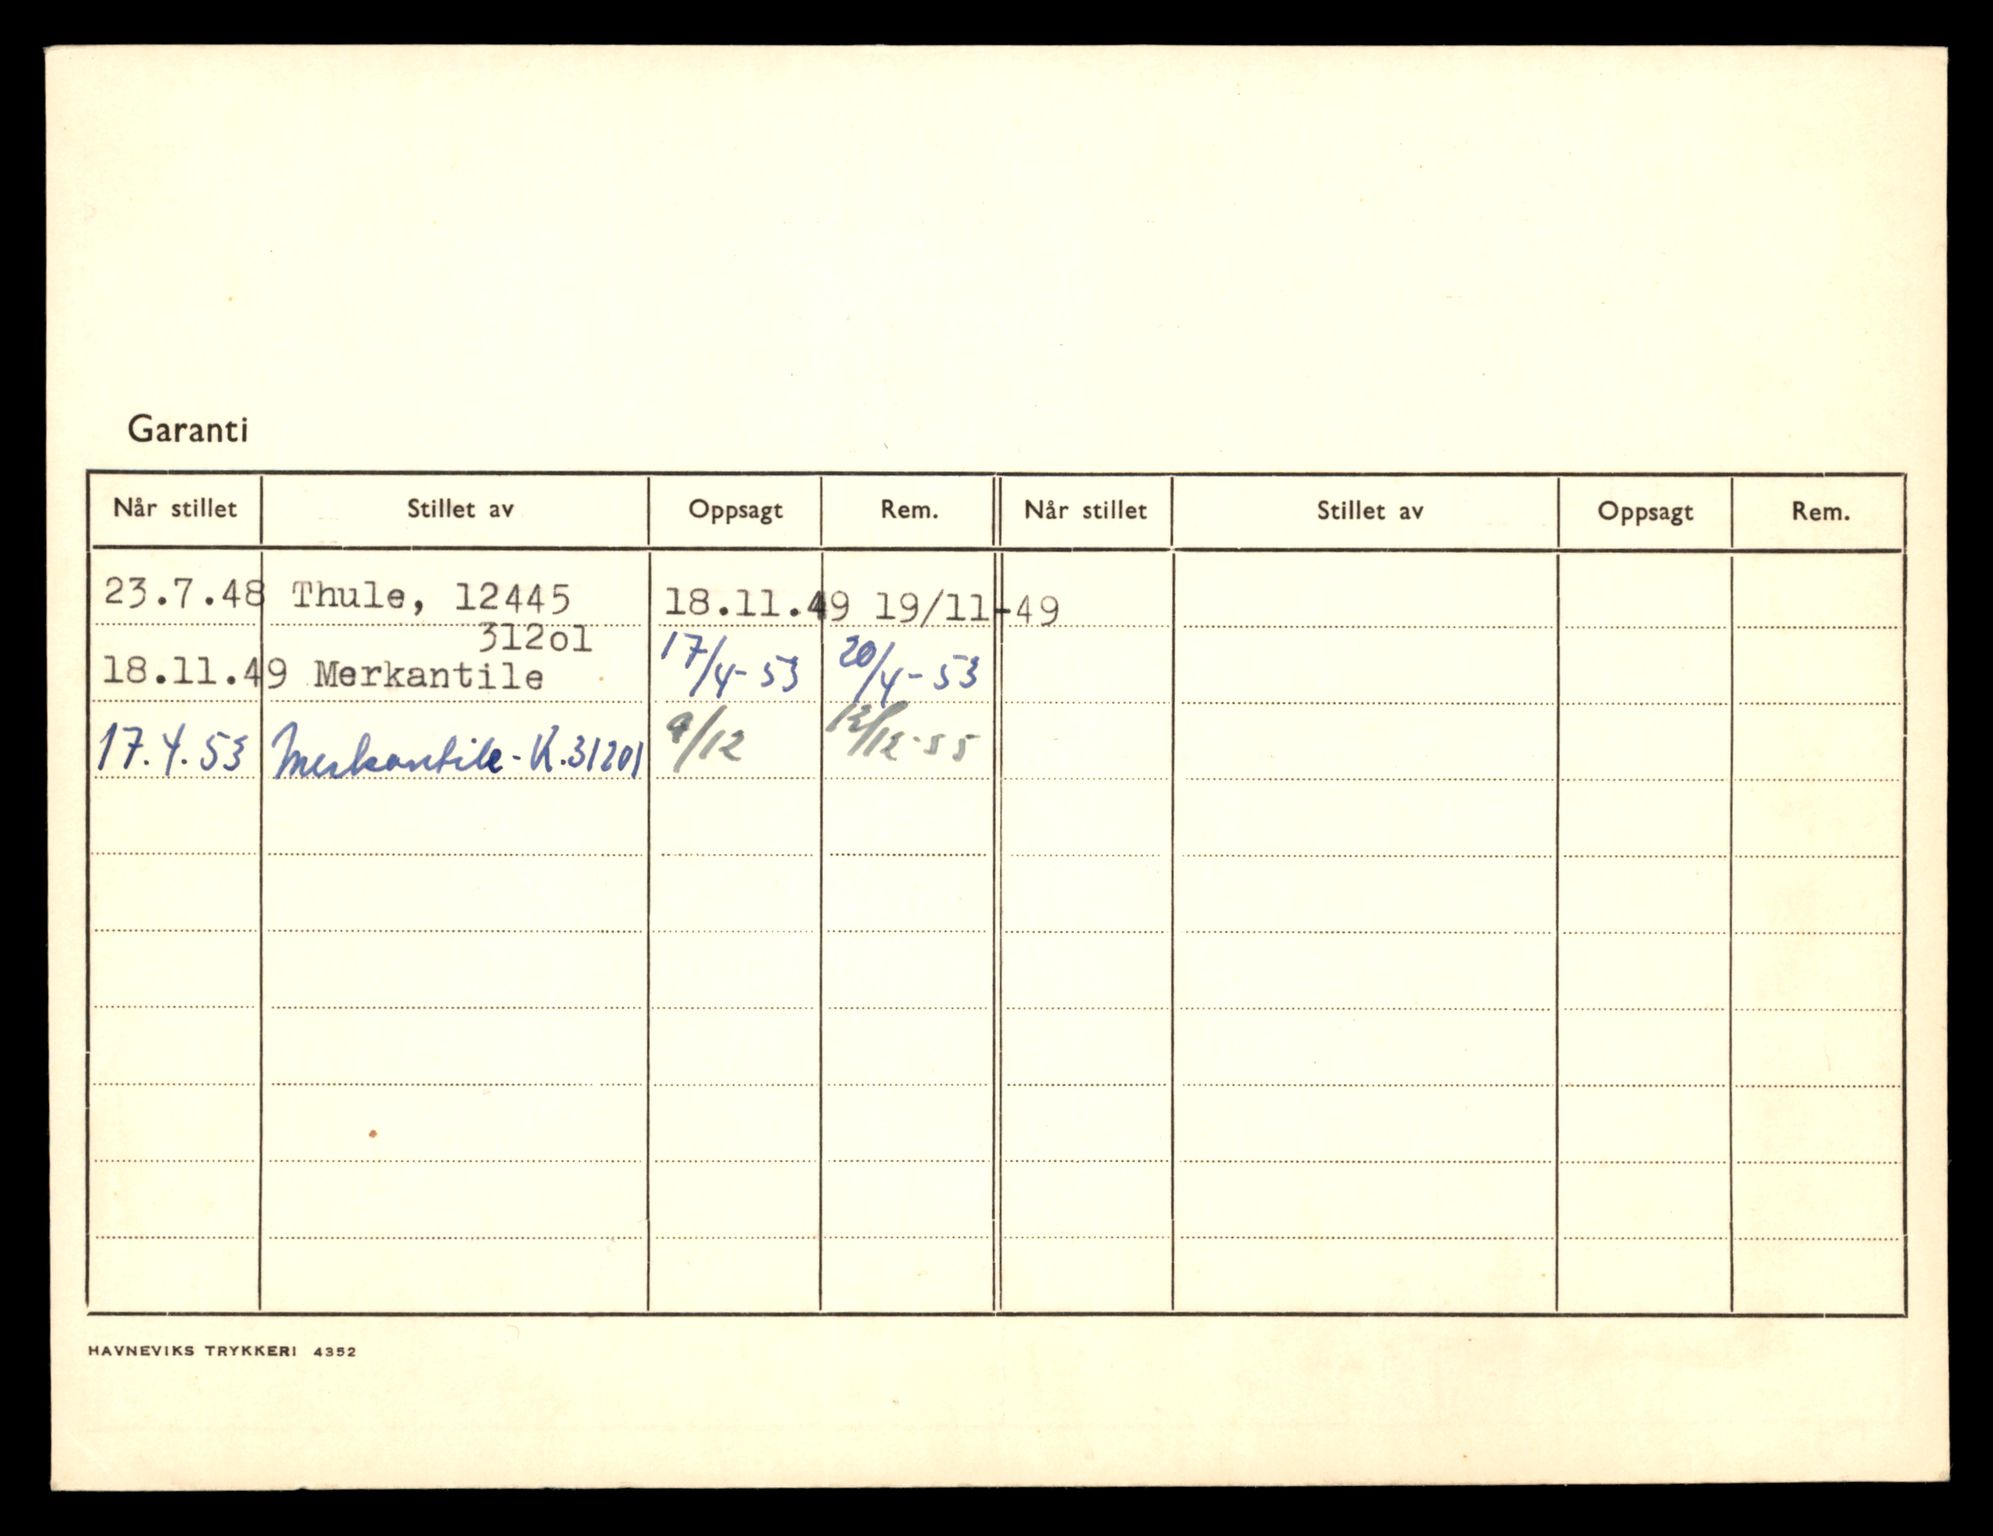 Garanti
Når stillet Stillet av Oppsagt Rem. Når stillet Stillet av Oppsagt Rem.
23.7.48 Thule, 12445 18.11.49 19/11-49
312ol
18.11.49 Merkantile 17/4-53 20/4-53
17.4.53 Merkantile-K.31201 9/12 12/12-55
HAVNEVIKS TRYKKERI 4352